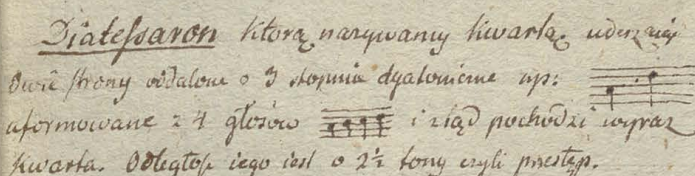 Diatessaron którą nazywamy kwartą uderzaięc
dwie strony oddalone o 3 stopnie dyatoniczne np:
uformowane z 4 głosów i ztąd pochodzi wyraz
kwarta. Odległość iego iest o 2½ tony czyli przestęp.